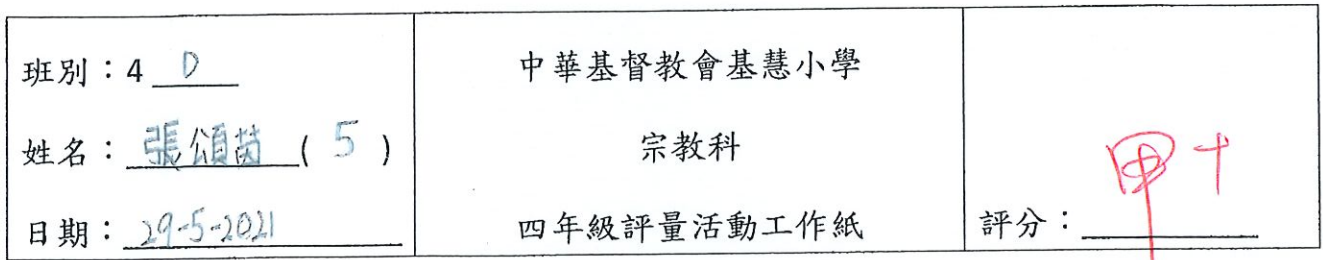 班別：4 D
姓名：張頌茵 ( 5 )
日期：29-5-2021
中華基督教會基慧小學
宗教科
四年級評量活動工作紙
評分：甲+